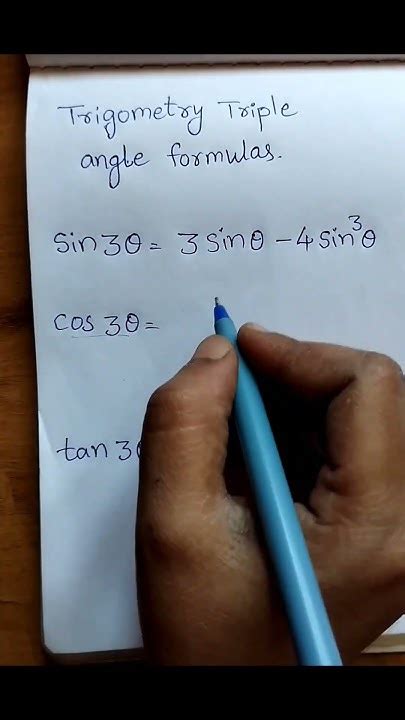 Trigometry Triple
angle formulas.
sin 3θ = 3 sinθ - 4 sin³θ
cos 3θ =
tan 3θ